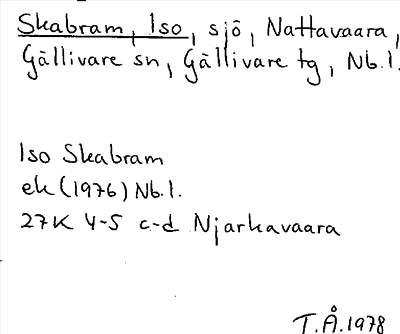 Skabram, Iso, sjö, Nattavaara,
Gällivare sn, Gällivare tg, Nb.l.
Iso Skabram
ek (1976) Nb.l.
27K 4-5 c-d Njarkavaara
T.Å.1978